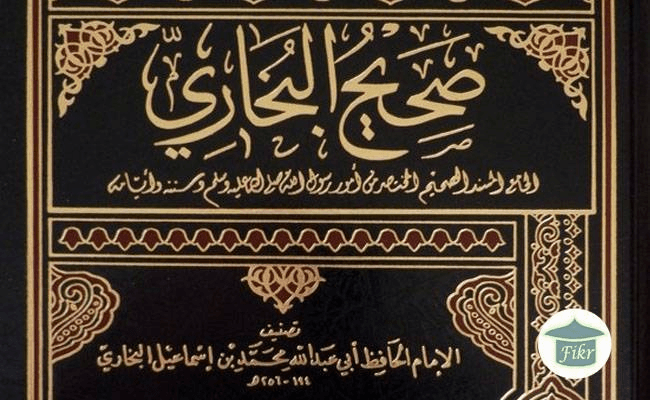 صَحِيحُ البُخَارِيِّ
الجامع المسند الصحيح المختصر من أمور رسول الله صلى الله عليه وسلم وسننه وأيامه
تصنيف
الإمام الحافظ أبي عبد الله محمد بن إسماعيل البخاري
١٩٤ - ٢٥٦هـ
Fikr